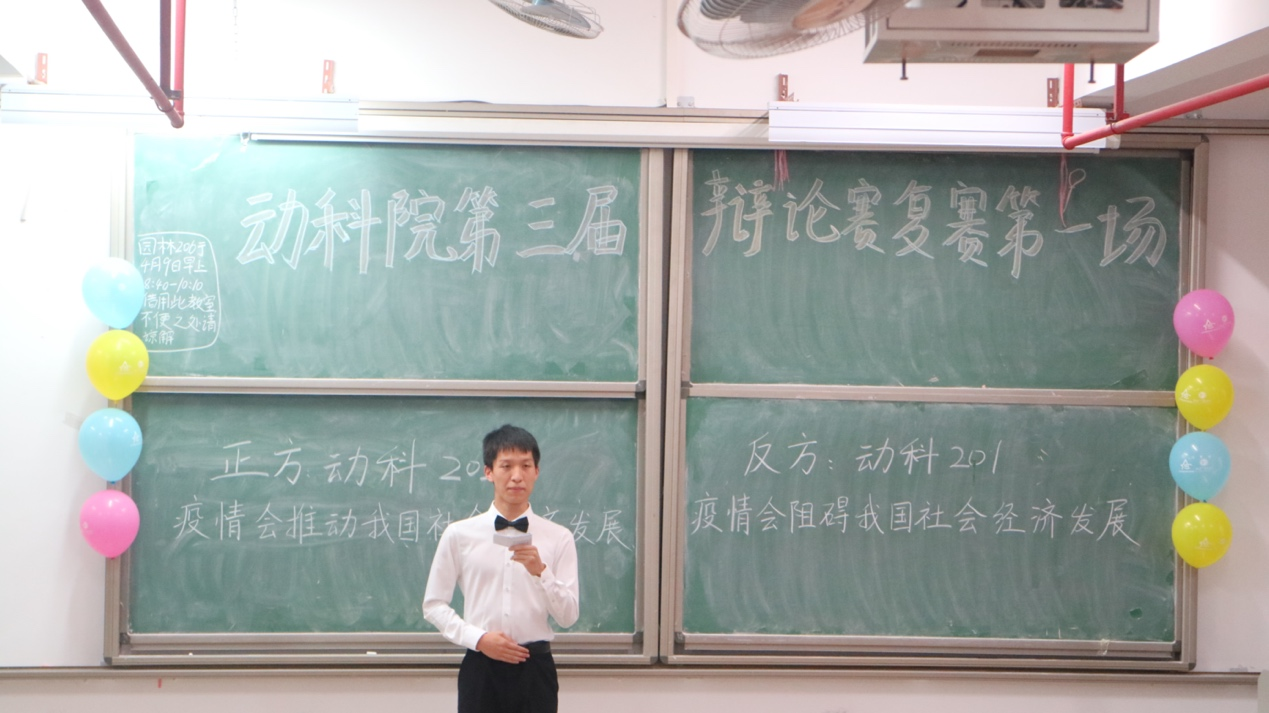 动科院第三届 辩论赛复赛第一场
园林206于
4月9日早上
8:40-10:10
借用此教室
不便之处请
谅解
正方:动科20
疫情会推动我国社 济发展
反方:动科201
疫情会阻碍我国社会经济发展